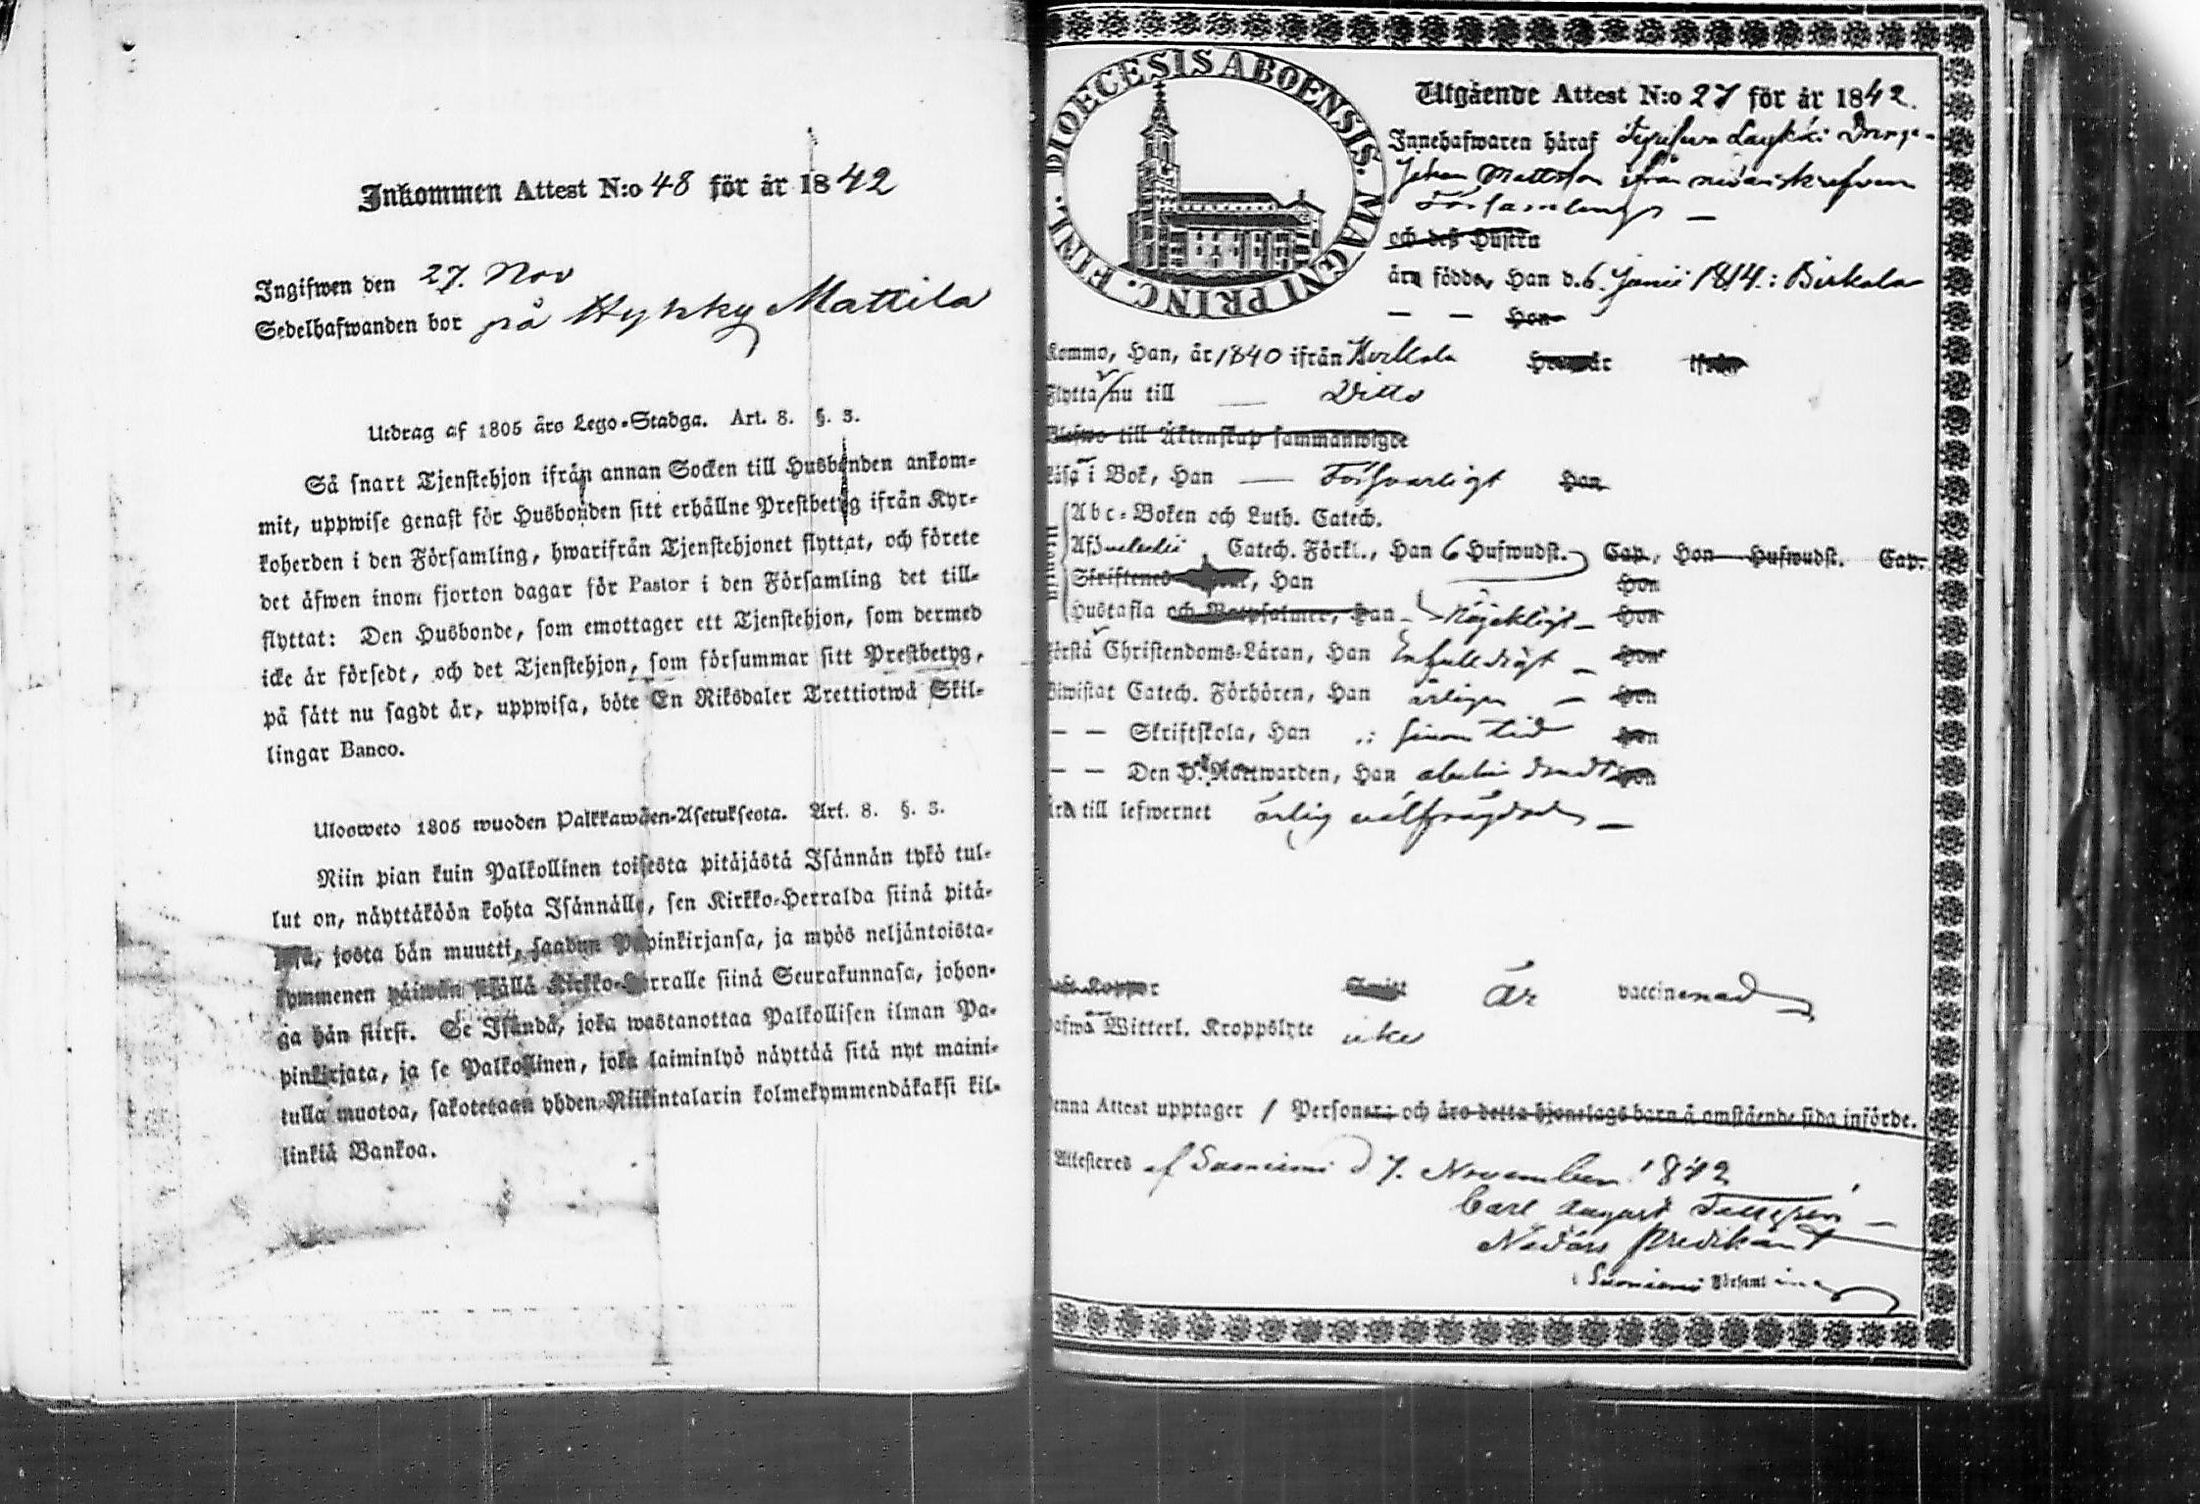 Inkommen Attest N:o 48 för år 1842
Ingifwen den 27. Nov
Sedelhafwanden bor på Hykky Mattila
Utdrag af 1805 års Lego-Stadga. Art. 8. §. 3.
Så snart Tjenstehjon ifrån annan Socken till Husbonden ankom-
mit, uppwise genast för Husbonden sitt erhållne Prestbetyg ifrån Kyr-
koherden i den Församling, hwarifrån Tjenstehjonet flyttat, och förete
det äfwen inom fjorton dagar för Pastor i den Församling det till-
flyttat: Den Husbonde, som emottager ett Tjenstehjon, som dermed
icke är försedt, och det Tjenstehjon, som försummar sitt Prestbetyg,
på sätt nu sagdt är, uppwisa, böte En Riksdaler Trettiotwå Skil-
lingar Banco.
Ulosweto 1805 wuoden Palkkawäen-Asetuksesta. Art. 8. §. 3.
Niin pian kuin Palkollinen toisesta pitäjästä Isännän tykö tul-
lut on, näyttäköön kohta Isännälle, sen Kirkko-Herralda siinä pitä-
jäsä, josta hän muutti, saadun Papinkirjansa, ja myös neljäntoista-
kymmenen päiwän sisällä Kirkko-Herralle siinä Seurakunnasa, johon-
ga hän siirsi. Se Isändä, joka wastanottaa Palkollisen ilman Pa-
pinkirjata, ja se Palkollinen, joka laiminlyö näyttää sitä nyt maini-
tulla muotoa, sakotetaan yhden Riikintalarin kolmekymmendäkaksi kil-
linkiä Bankoa.
DIOECESIS ABOENSIS. MAGNI PRINC. FINL.
Utgående Attest N:o 27 för år 1842.
Innehafwaren häraf Drenge-
Johan Mattsson ifrån nedanskrefven
Församling –
och deß Hustru
äro födde, Han d. 6. Junii 1814 : Birkala
— — Hon
Kommo, Han, år 1840 ifrån Hon år ifrån
Flytta nu till — Ditto
Blefwo till Äktenskap sammanwigde
Läsa i Bok, Han — Försvarligt Hon
Abc-Boken och Luth. Catech.
Catech. Förkl., Han 6 Hufwudst. Cap., Hon Hufwudst. Cap.
Skriftenes , Han Hon
Hustafla och Botpsalmer, Han – Nöjeligt – Hon
Förstå Christendoms-Läran, Han Enfaldigt – Hon
Biwistat Catech. Förhören, Han årligen – Hon
— — Skriftskola, Han i sinom tid Hon
— — Den H. Nattwarden, Han Hon
Äro till lefwernet ärlig välfrägdad –
Haft Koppor Är vaccinerad
Hafwa Witterl. Kroppslyte icke
Denna Attest upptager 1 Personer och äro detta hjonelags barn å omstående sida införde.
Attesteres af Suoniemi d 7. November 1842
Carl August
Nådårs Predikant
i Suoniemi Församling